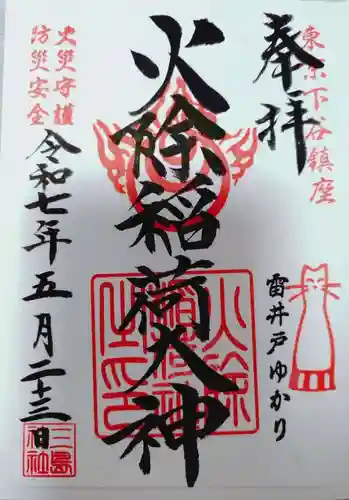 東京下谷鎮座
奉拝
雷井戸ゆかり
火除稲荷大神
火災守護
防災安全
令和七年五月二十三日
三島
神社